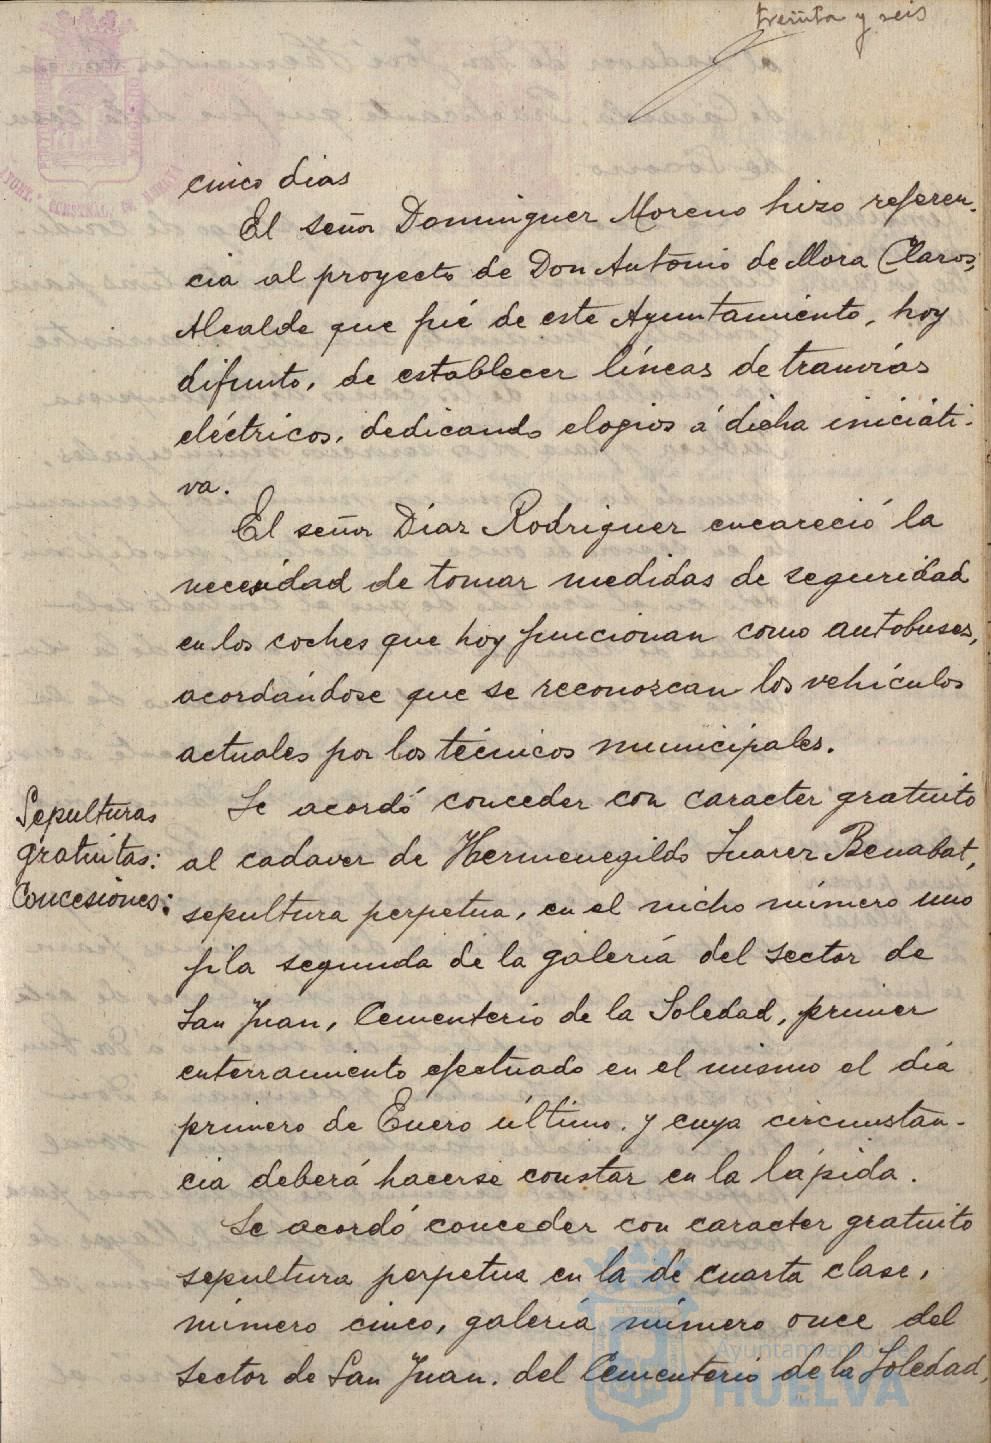 treinta y seis
cinco dias
El señor Dominguez Moreno hizo referen-
cia al proyecto de Don Antonio de Mora Claros,
Alcalde que fué de este Ayuntamiento, hoy
difunto, de establecer líneas de tranvías
eléctricos, dedicando elogios á dicha iniciati-
va.
El señor Díaz Rodriguez encareció la
necesidad de tomar medidas de seguridad
en los coches que hoy funcionan como autobuses,
acordándose que se reconozcan los vehículos
actuales por los técnicos municipales.
Sepulturas
gratuitas:
Concesiones:
Se acordó conceder con caracter gratuito
al cadaver de Hermenegildo Suarez Benabat,
sepultura perpetua, en el nicho número uno
fila segunda de la galería del sector de
San Juan, Cementerio de la Soledad, primer
enterramiento efectuado en el mismo el día
primero de Enero último, y cuya circunstan-
cia deberá hacerse constar en la lápida.
Se acordó conceder con caracter gratuito
sepultura perpetua en la de cuarta clase,
número cinco, galería número once del
sector de San Juan, del Cementerio de la Soledad,
Ayuntamiento de
HUELVA